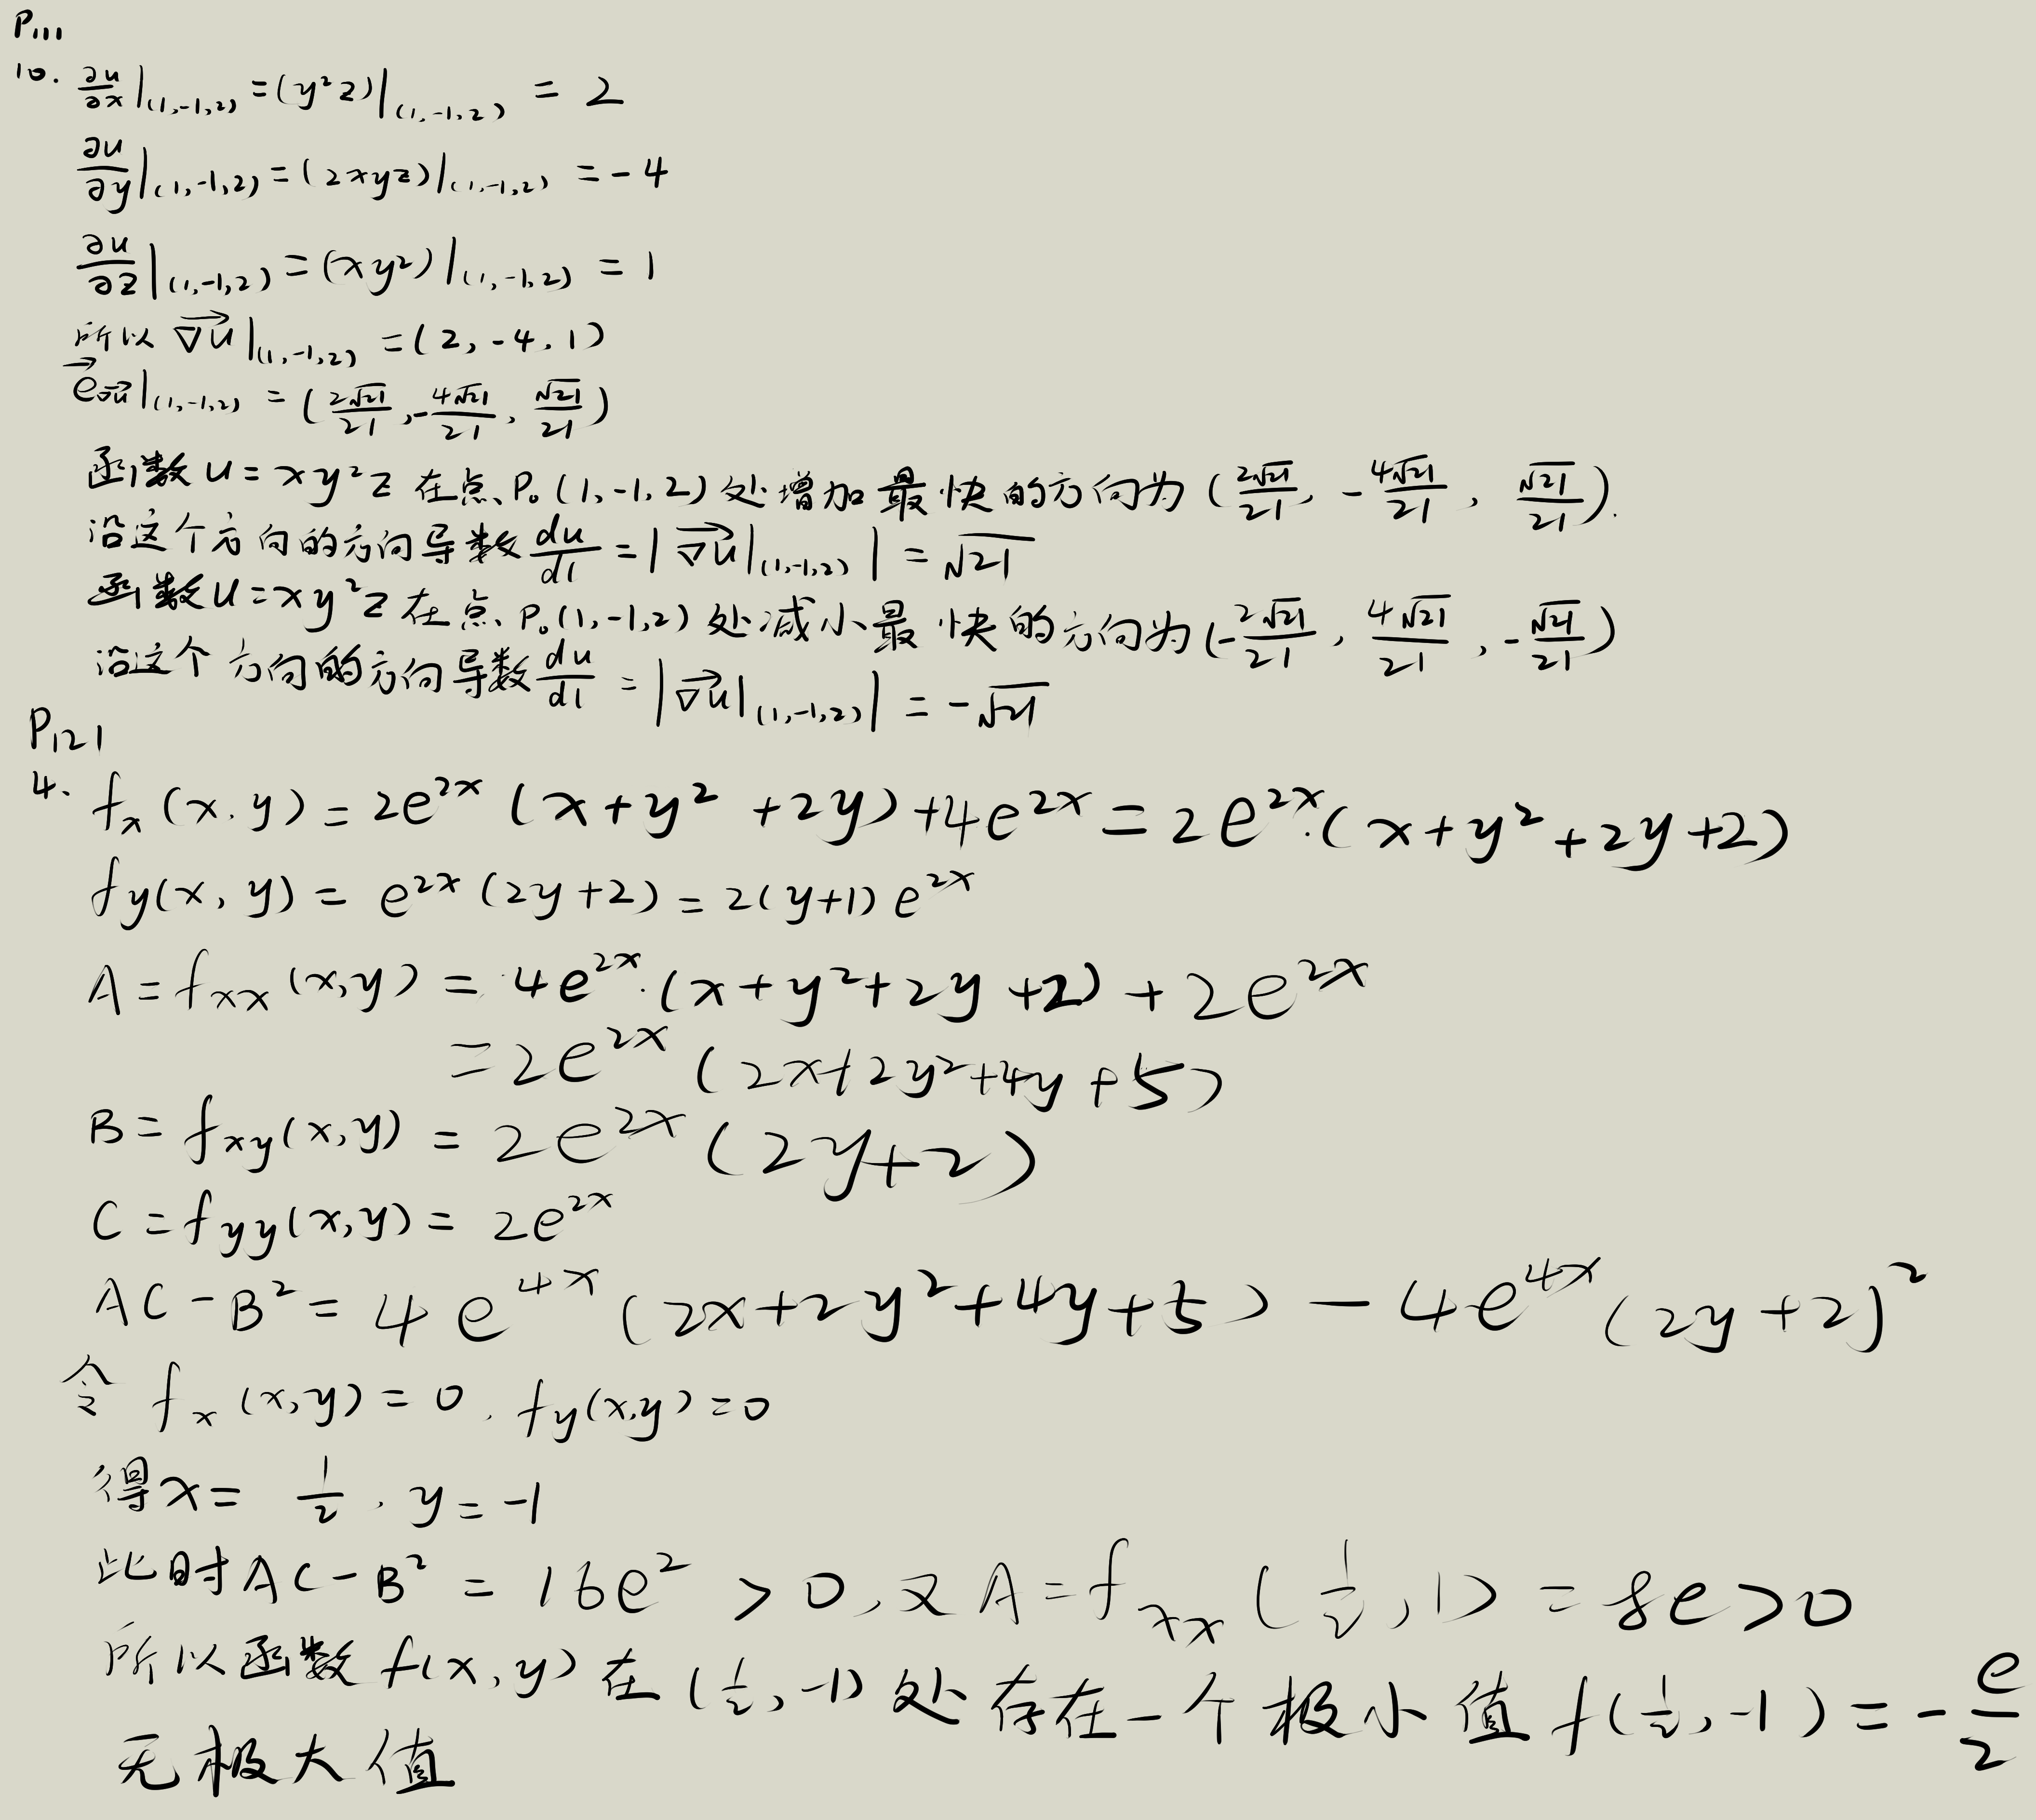 P₁₁₁
10. ∂u/∂x|(1,-1,2) = (y²z)|(1,-1,2) = 2
∂u/∂y|(1,-1,2) = (2xyz)|(1,-1,2) = -4
∂u/∂z|(1,-1,2) = (xy²)|(1,-1,2) = 1
所以 ∇u|(1,-1,2) = (2, -4, 1)
e∇u|(1,-1,2) = (2√21/21, -4√21/21, √21/21)
函数 u = xy²z 在点 P₀(1,-1,2) 处增加最快的方向为 (2√21/21, -4√21/21, √21/21).
沿这个方向的方向导数 du/dl = |∇u|(1,-1,2)| = √21
函数 u = xy²z 在点 P₀(1,-1,2) 处减小最快的方向为 (-2√21/21, 4√21/21, -√21/21)
沿这个方向的方向导数 du/dl = |∇u|(1,-1,2)| = -√21
P₁₂₁
4. fₓ(x,y) = 2e²ˣ(x+y²+2y)+4e²ˣ = 2e²ˣ·(x+y²+2y+2)
fy(x,y) = e²ˣ(2y+2) = 2(y+1)e²ˣ
A = fxx(x,y) = 4e²ˣ·(x+y²+2y+2) + 2e²ˣ
= 2e²ˣ(2x+2y²+4y+5)
B = fxy(x,y) = 2e²ˣ(2y+2)
C = fyy(x,y) = 2e²ˣ
AC-B² = 4e⁴ˣ(2x+2y²+4y+5) - 4e⁴ˣ(2y+2)²
令 fₓ(x,y) = 0, fy(x,y) = 0
得 x = 1/2, y = -1
此时 AC-B² = 16e² > 0, 又 A = fxx(1/2, 1) = 8e > 0
所以函数 f(x,y) 在 (1/2, -1) 处存在一个极小值 f(1/2, -1) = -e/2
无极大值